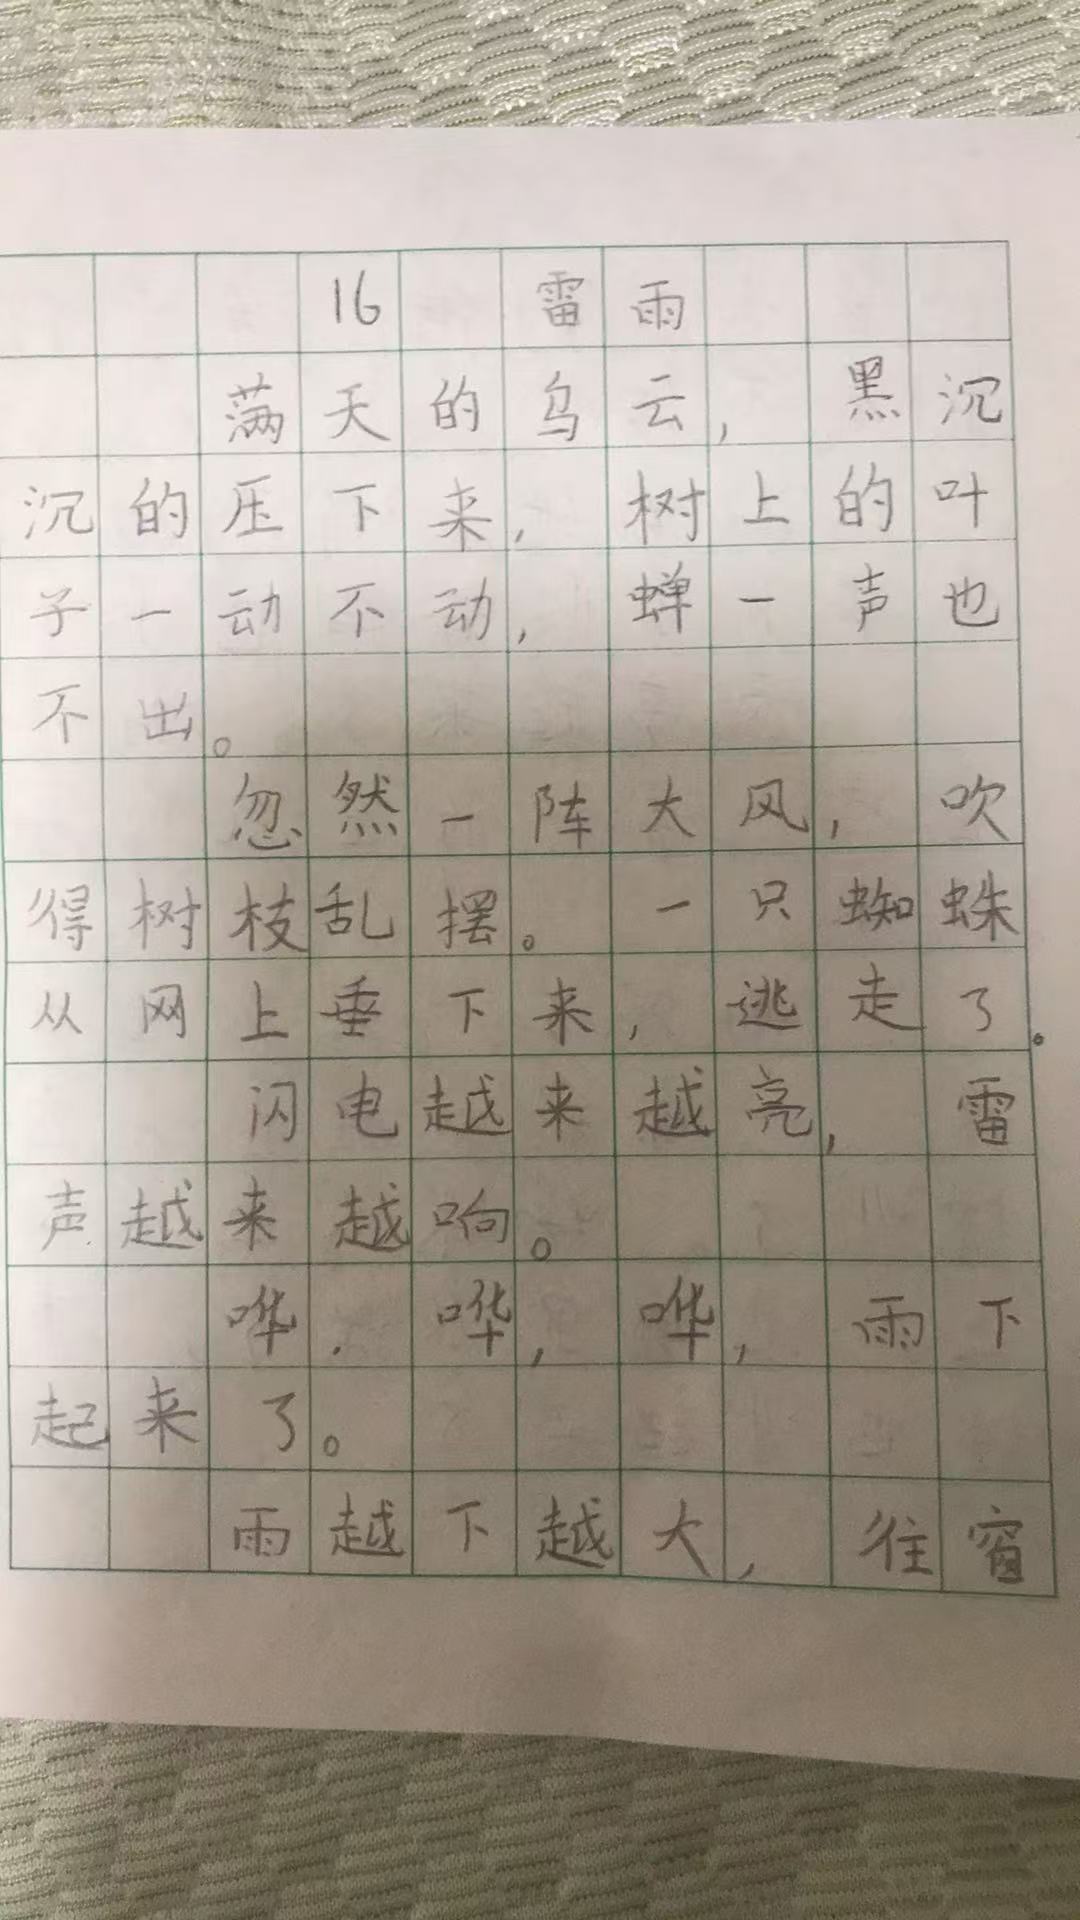 16 雷雨
满天的乌云，黑沉
沉的压下来，树上的叶
子一动不动，蝉一声也
不出。
忽然一阵大风，吹
得树枝乱摆。一只蜘蛛
从网上垂下来，逃走了。
闪电越来越亮，雷
声越来越响。
哗，哗，哗，雨下
起来了。
雨越下越大，往窗